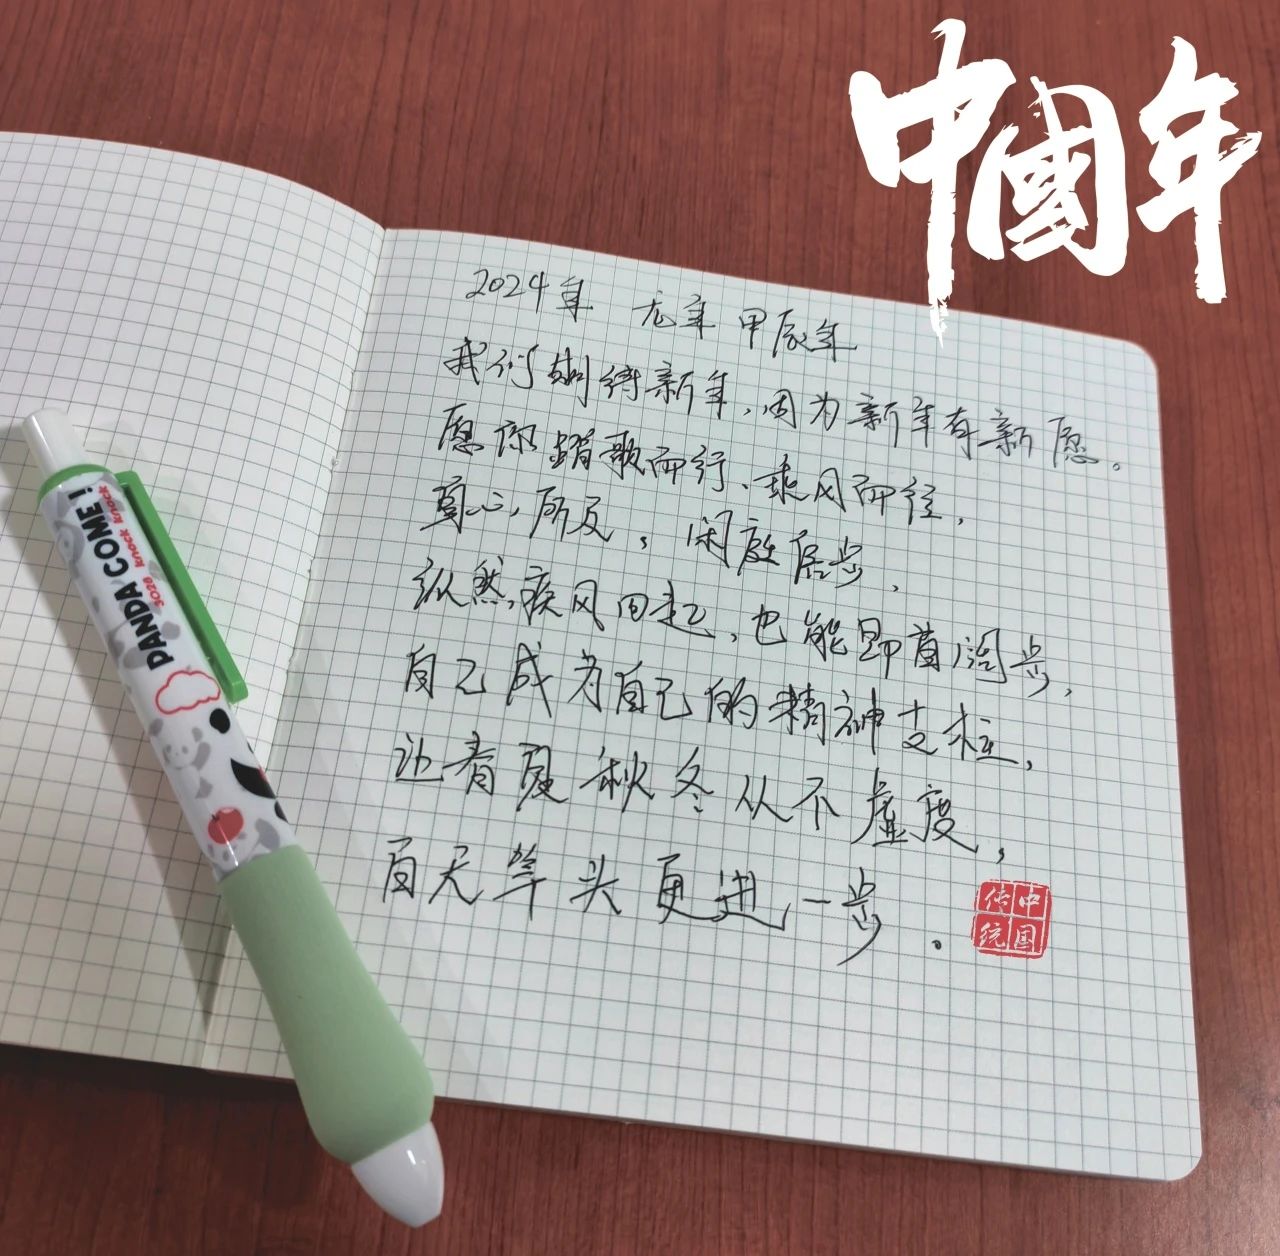 中國年
2024年 龙年 甲辰年
我们期待新年,因为新年有新愿。
愿你踏歌而行、乘风而往,
真心所及,闲庭信步,
纵然疾风回起,也能昂首阔步,
自己成为自己的精神支柱,
让春夏秋冬从不虚度,
百尺竿头更进一步。
中国
传统
PANDA COME!
3028 knock knock